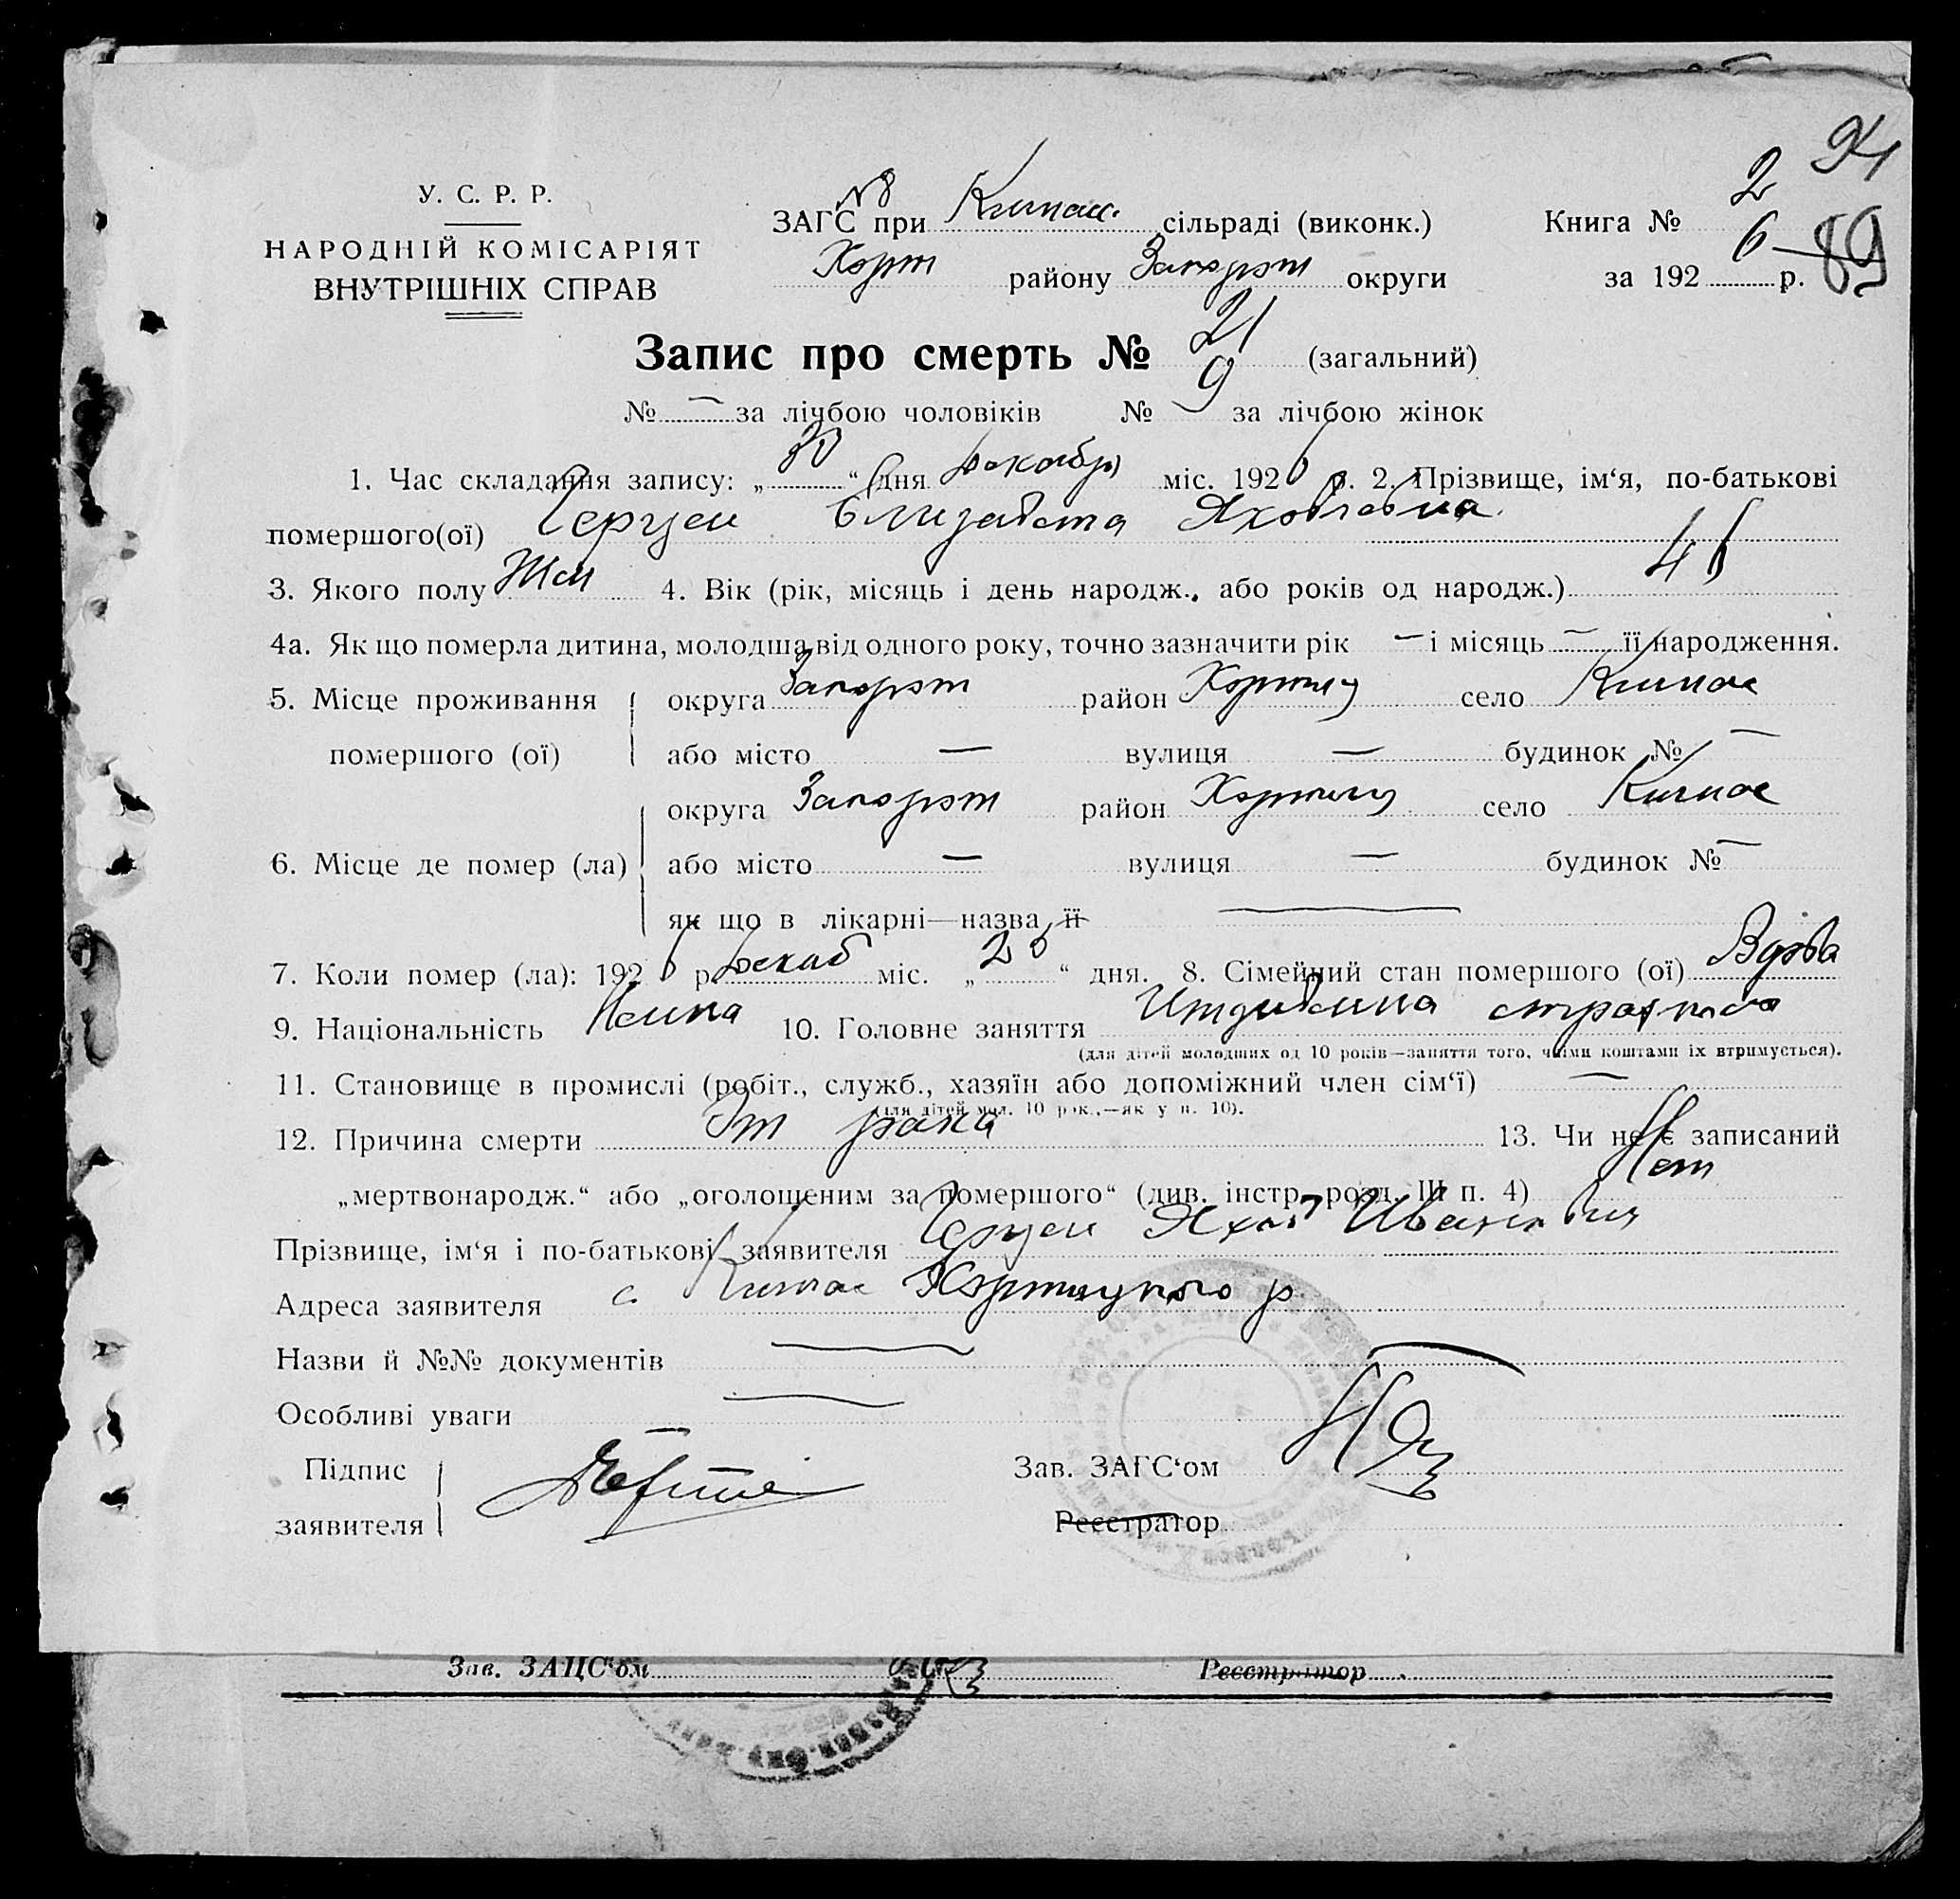 94
У. С. Р. Р.
НАРОДНІЙ КОМІСАРІЯТ
ВНУТРІШНІХ СПРАВ
№ 8
ЗАГС при сільраді (виконк.)
Хорт району Запорож округи
Книга № 2
за 1926 р. 89
Запис про смерть № 21 (загальний)
№ — за лічбою чоловіків № 9 за лічбою жінок
1. Час складання запису: „30“ дня декабря міс. 1926 р. 2. Прізвище, ім‘я, по-батькові
помершого(ої) Герцен Елизабета Яковлевна
3. Якого полу Жен 4. Вік (рік, місяць і день народж., або років од народж.) 46
4а. Як що померла дитина, молодша від одного року, точно зазначити рік — і місяць — її народження.
5. Місце проживання помершого (ої) округа Запорож район Хортиц село
або місто — вулиця — будинок № —
6. Місце де помер (ла) округа Запорож район Хортиц село
або місто — вулиця — будинок № —
як що в лікарні—назва її —
7. Коли помер (ла): 1926 р. декаб міс. „28“ дня. 8. Сімейний стан помершого (ої) Вдова
9. Національність Немка 10. Головне заняття
(для дітей молодших од 10 років—заняття того, чиїми коштами їх втримується).
11. Становище в промислі (робіт., служб., хазяїн або допоміжний член сім‘ї) —
(для дітей мол. 10 рок.,—як у п. 10).
12. Причина смерти От рака 13. Чи не є записаний
„мертвонародж.“ або „оголошеним за помершого“ (див. інстр. розд. III п. 4) Нет
Прізвище, ім‘я і по-батькові заявителя Герцен Яков Иванович
Адреса заявителя с. Хортицкого р
Назви й №№ документів —
Особливі уваги —
Підпис заявителя
Зав. ЗАГС‘ом
Реєстратор
Зав. ЗАЦС‘ом Реєстратор